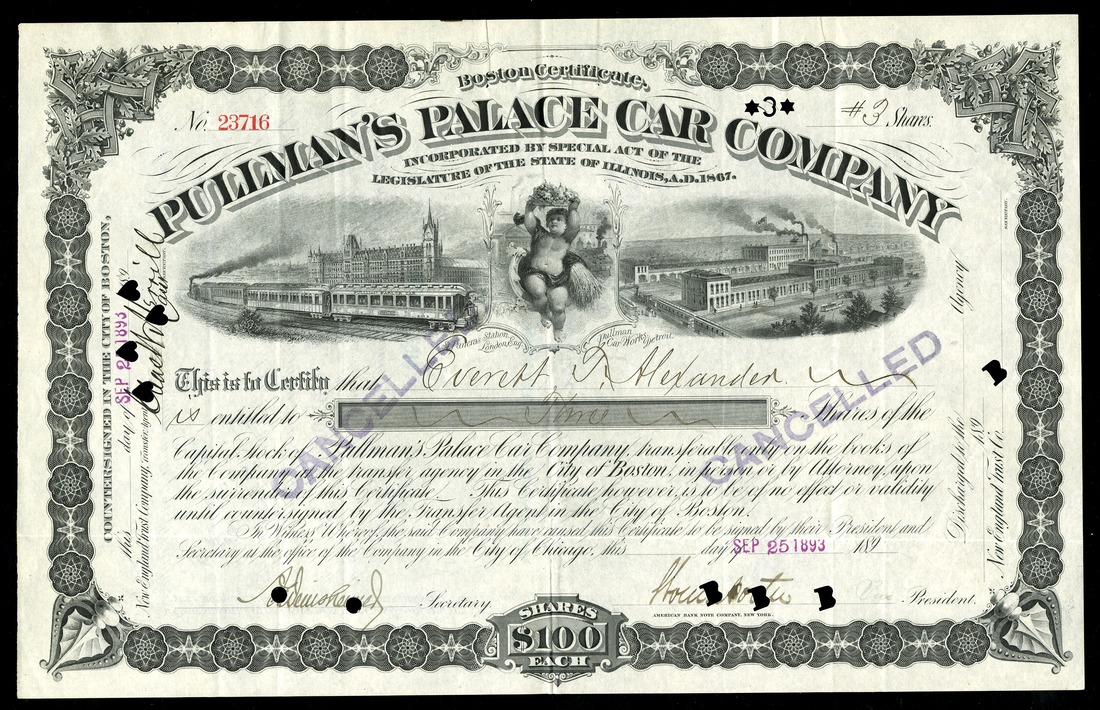 Boston Certificate.
No. 23716
★3★
#3 Shares.
PULLMAN'S PALACE CAR COMPANY
INCORPORATED BY SPECIAL ACT OF THE
LEGISLATURE OF THE STATE OF ILLINOIS, A.D. 1867.
St. Pancras Station London, Eng.
Pullman Car Works Detroit.
This is to Certify that Everett F. Alexander.
is entitled to Three Shares of the
Capital Stock of Pullman's Palace Car Company, transferable on the books of
the Company at the transfer agency in the City of Boston, in person or by Attorney, upon
the surrender of this Certificate. This Certificate however is to be of no effect or validity
until countersigned by the Transfer Agent in the City of Boston.
In Witness Whereof, the said Company have caused this Certificate to be signed by their President and
Secretary at the office of the Company in the City of Chicago, this day SEP 25 1893 189
Secretary.
Vice President.
AMERICAN BANK NOTE COMPANY, NEW YORK.
SHARES
$100
EACH
CANCELLED
CANCELLED
COUNTERSIGNED IN THE CITY OF BOSTON,
this day of SEP 2 1893 189
New England Trust Company, Transfer Agent
Discharged to the Agency
189
New England Trust Co.
B
B B B